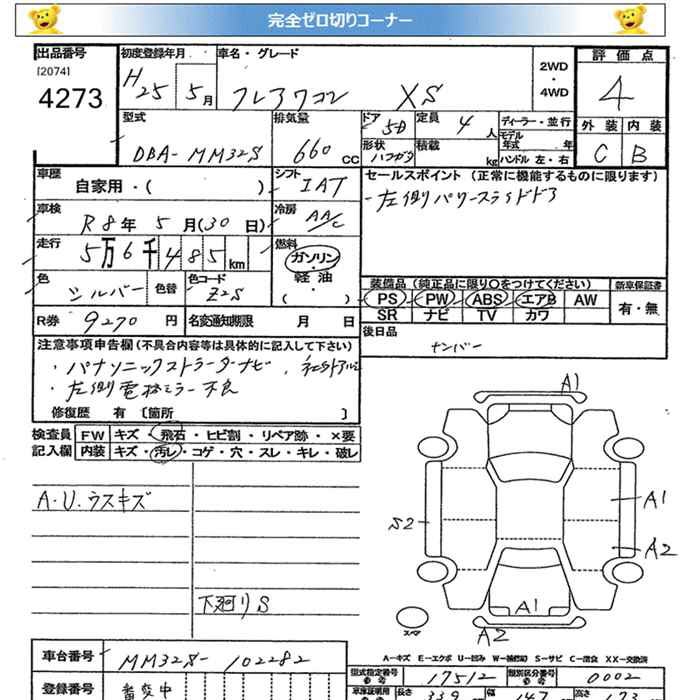 完全ゼロ切りコーナー
出品番号 初度登録年月 車名・グレード 2WD・4WD 評価点
[2074]
4273 H25 5月 フレアワゴン XS 4
型式 排気量 ドア 定員 ディーラー・並行 外装 内装
DBA-MM32S 660cc 5D 4人 モデル年式 年 C B
形状 積載 kg ハンドル 左・右
車歴 自家用・( ) シフト IAT セールスポイント (正常に機能するものに限ります)
車検 R8年5月(30日) 冷房 AAC 左側パワースライドドア
走行 5万6千485km 燃料 ガソリン・軽油・( )
色 シルバー 色替 色コード Z2S 装備品 (純正品に限り○をつけてください) 新車保証書
PS PW ABS エアB AW 有・無
R券 9270円 名変通知期限 月 日 SR ナビ TV カワ
後日品
ナンバー
注意事項申告欄 (不具合内容等は具体的に記入して下さい)
・パナソニックストラーダナビ
・左側電格ミラー不良
修復歴 有 [箇所 ]
検査員 FW キズ・飛石・ヒビ割・リペア跡・×要
記入欄 内装 キズ・汚レ・コゲ・穴・スレ・キレ・破レ
A1
A・U.ウスキズ
S2 A1
A2
下廻りS
A1
スペア
A2
車台番号 MM32S-102282
A-キズ E-エクボ U-凹み W-補修跡 S-サビ C-腐食 XX-交換済
型式指定番号 参考 17512 類別区分番号 参考 0002
登録番号 番変中 車庫証明用 参考 長さ 339 幅 147 高さ 173